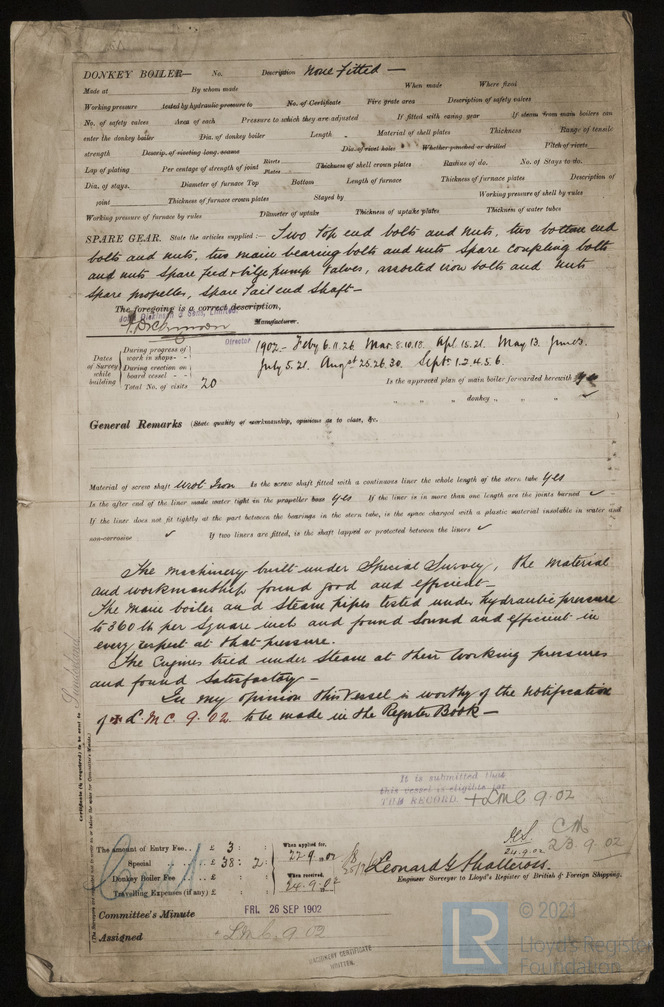 DONKEY BOILER— No. Description None Fitted —
Made at By whom made When made Where fixed
Working pressure tested by hydraulic pressure to No. of Certificate Fire grate area Description of safety valves
No. of safety valves Area of each Pressure to which they are adjusted If fitted with easing gear If steam from main boilers can
enter the donkey boiler Dia. of donkey boiler Length Material of shell plates Thickness Range of tensile
strength Descrip. of riveting long. seams Dia. of rivet holes Whether punched or drilled Pitch of rivets
Lap of plating Per centage of strength of joint Rivets Plates Thickness of shell crown plates Radius of do. No. of Stays to do.
Dia. of stays. Diameter of furnace Top Bottom Length of furnace Thickness of furnace plates Description of
joint Thickness of furnace crown plates Stayed by Working pressure of shell by rules
Working pressure of furnace by rules Diameter of uptake Thickness of uptake plates Thickness of water tubes
SPARE GEAR. State the articles supplied :— Two top end bolts and nuts, two bottom end
bolts and nuts, two main bearing bolts and nuts Spare coupling bolts
and nuts Spare Feed & bilge pump Valves, assorted iron bolts and nuts
Spare propeller, Spare Tail end Shaft—
The foregoing is a correct description,
Manufacturer.
Director
Dates of Survey while building
During progress of work in shops - - 1902.- Feby 6.11.26 Mar. 8.10.18. Apl 15.21. May 13. June 3.
During erection on board vessel - - July 5.21. Augst 25.26.30. Septr 1.2.4.5.6.
Total No. of visits 20 Is the approved plan of main boiler forwarded herewith
" " " donkey " " " ✓
General Remarks (State quality of workmanship, opinions as to class, &c.
Material of screw shaft Wrot Iron Is the screw shaft fitted with a continuous liner the whole length of the stern tube Yes
Is the after end of the liner made water tight in the propeller boss Yes If the liner is in more than one length are the joints burned ✓
If the liner does not fit tightly at the part between the bearings in the stern tube, is the space charged with a plastic material insoluble in water and
non-corrosive ✓ If two liners are fitted, is the shaft lapped or protected between the liners ✓
The Machinery built under Special Survey, the material
and workmanship found good and efficient—
The main boiler and Steam pipes tested under hydraulic pressure
to 360 lb per square inch and found Sound and efficient in
every respect at that pressure.
The Engines tried under Steam at their working pressures
and found Satisfactory—
In my opinion this Vessel is worthy of the notification
of L.M.C. 9.02. to be made in the Register Book—
It is submitted that
this vessel is eligible for
THE RECORD + LMC 9.02
24.9.02
23.9.02
Certificate (if required) to be sent to Sunderland
The amount of Entry Fee.. £ 3 : : When applied for,
Special .. £ 38 : 2 : 22.9.02
Donkey Boiler Fee .. £ : : When received,
Travelling Expenses (if any) £ : : 24.9.02
Leonard G Shallcross.
Engineer Surveyor to Lloyd's Register of British & Foreign Shipping.
Committee's Minute FRI. 26 SEP 1902
Assigned + LMC 9.02
MACHINERY CERTIFICATE
WRITTEN.
LR
© 2021
Lloyd's Register
Foundation